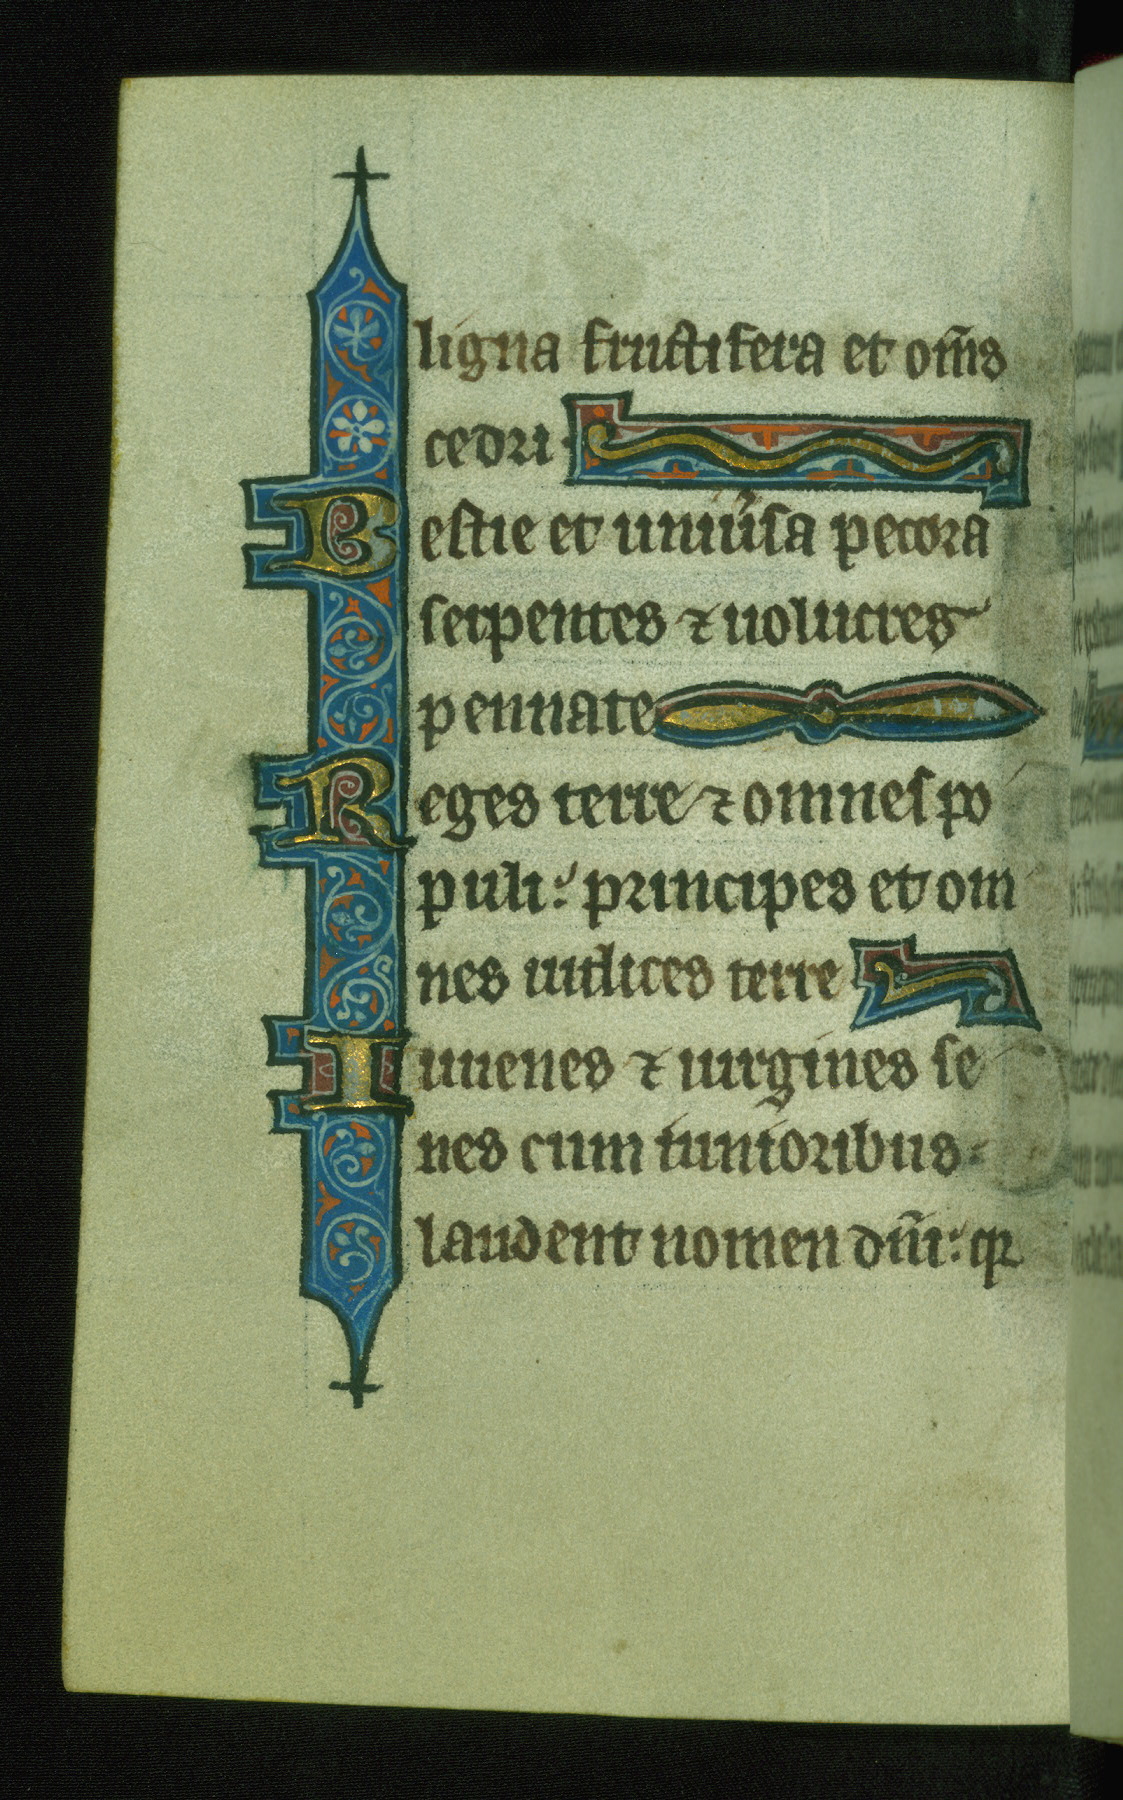 ligna fructifera et om̄s
cedri
Bestie et uniu̾sa pecora
serpentes ⁊ uolucres
pennate
Reges terre ⁊ omnes po
puli: principes et om
nes iudices terre
Iuuenes ⁊ uirgines se
nes cum iunioribus
laudent nomen dn̄i: qr